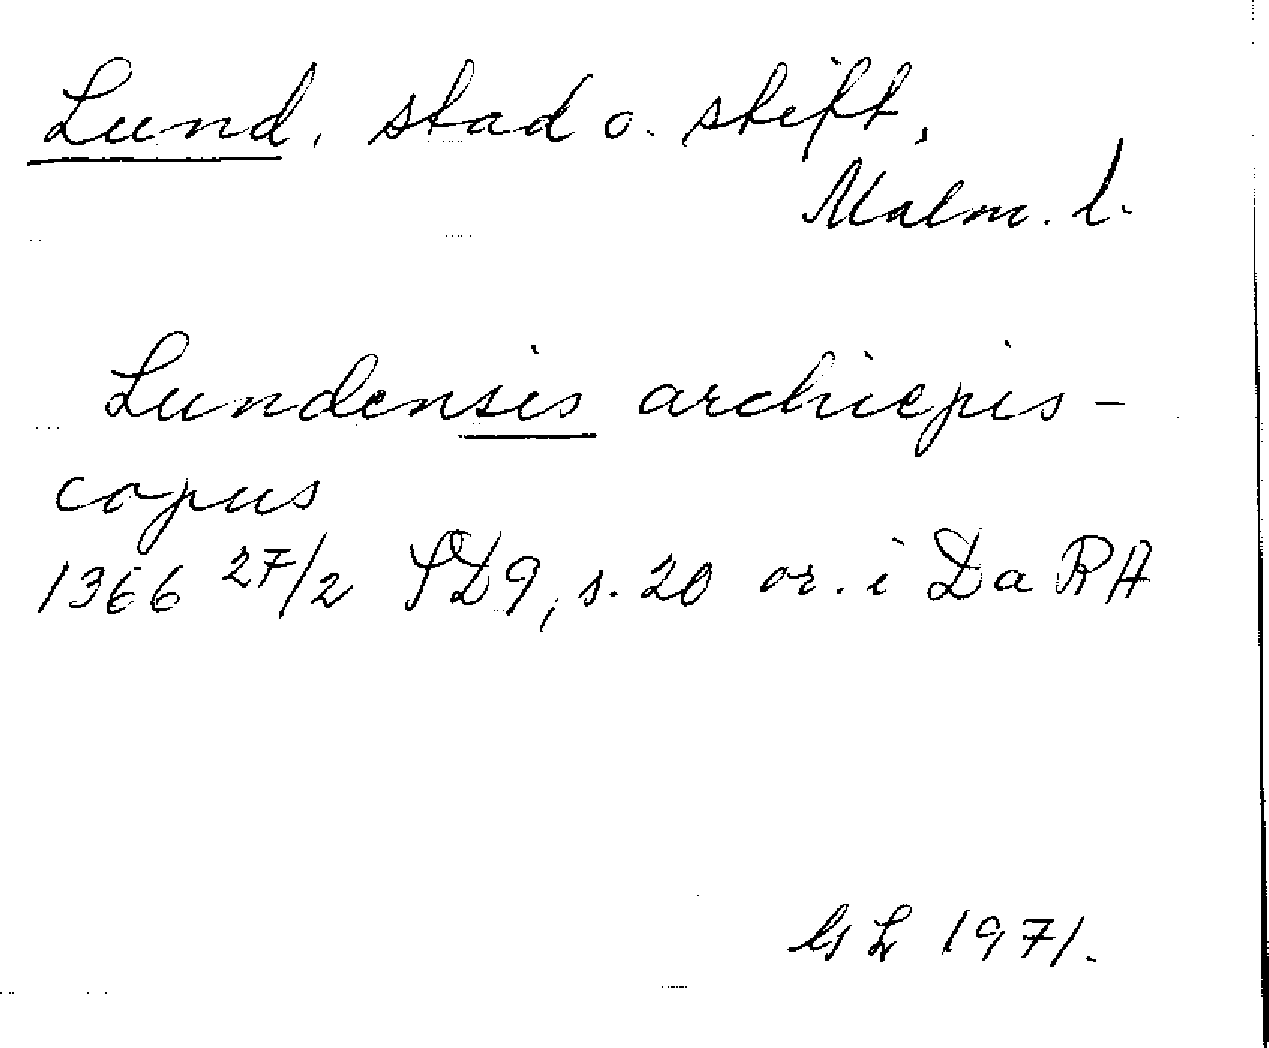 Lund, stad o. stift,
Malm. l.
Lundensis archiepis-
copus
1366 27/2 SD9, s. 20 or. i Da RA
GL 1971.